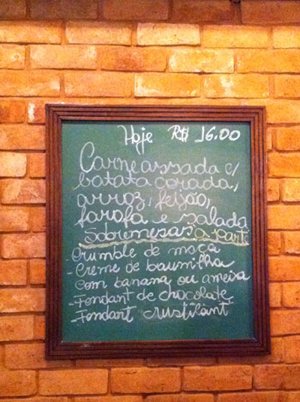 Hoje R$ 16.00
Carne assada c/
batata corada,
arroz, feijão,
farofa e salada
Sobremesas a part
Crumble de maçã
- Creme de baunilha
com banana ou ameixa
- Fondant de chocolate
- Fondant crustilant